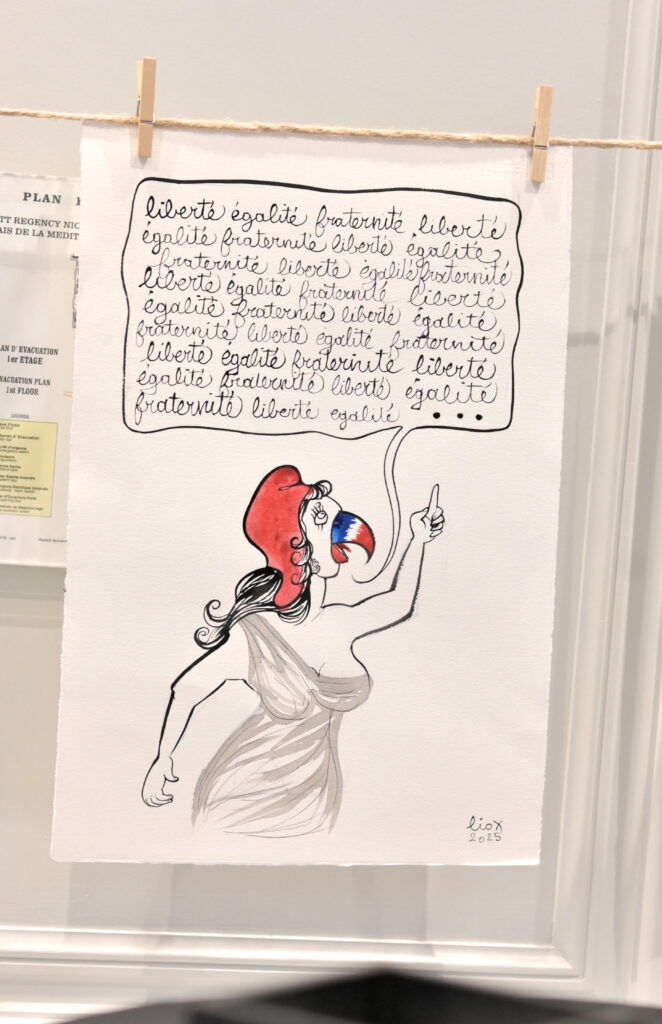 liberté égalité fraternité liberté
égalité fraternité liberté égalité
fraternité liberté égalité fraternité
liberté égalité fraternité liberté
égalité fraternité liberté égalité
fraternité liberté égalité fraternité
liberté égalité fraternité liberté
égalité fraternité liberté égalité
fraternité liberté egalité ...
liox
2025
PLAN
TT REGENCY NIC
AIS DE LA MEDIT
AN D'EVACUATION
1er ETAGE
VACUATION PLAN
1st FLOOR
LEGENDE: